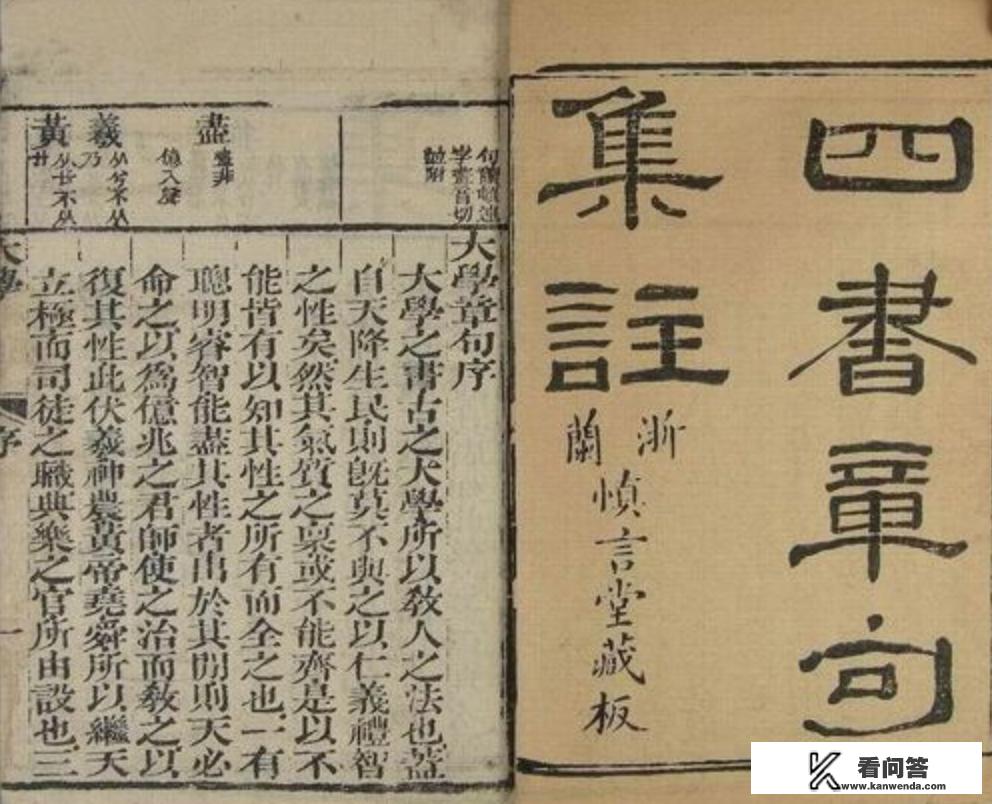 四書章句
集註
浙
蘭
慎言堂藏板
句讀
字畫音切
並附
盡
羲
黃
大學章句序
大學之書古之大學所以敎人之法也蓋
自天降生民則旣莫不與之以仁義禮智
之性矣然其氣質之稟或不能齊是以不
能皆有以知其性之所有而全之也一有
聰明睿智能盡其性者出於其閒則天必
命之以爲億兆之君師使之治而敎之以
復其性此伏羲神農黃帝堯舜所以繼天
立極而司徒之職典樂之官所由設也三
大學
序
一
看问答
www.kanwenda.com